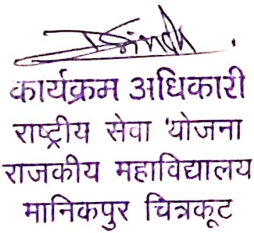 Singh
कार्यक्रम अधिकारी
राष्ट्रीय सेवा योजना
राजकीय महाविद्यालय
मानिकपुर चित्रकूट